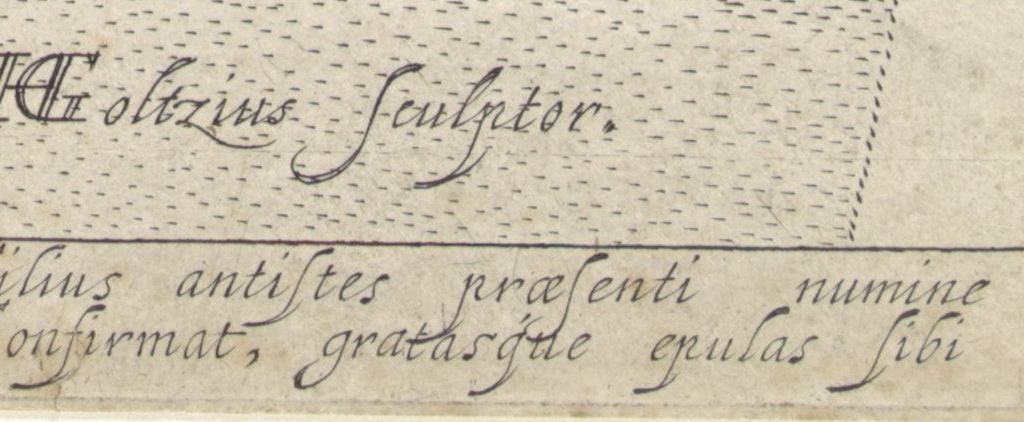 HGoltzius sculptor.
ilius antiſtes præſenti numine
onfirmat, gratasq́ue epulas ſibi